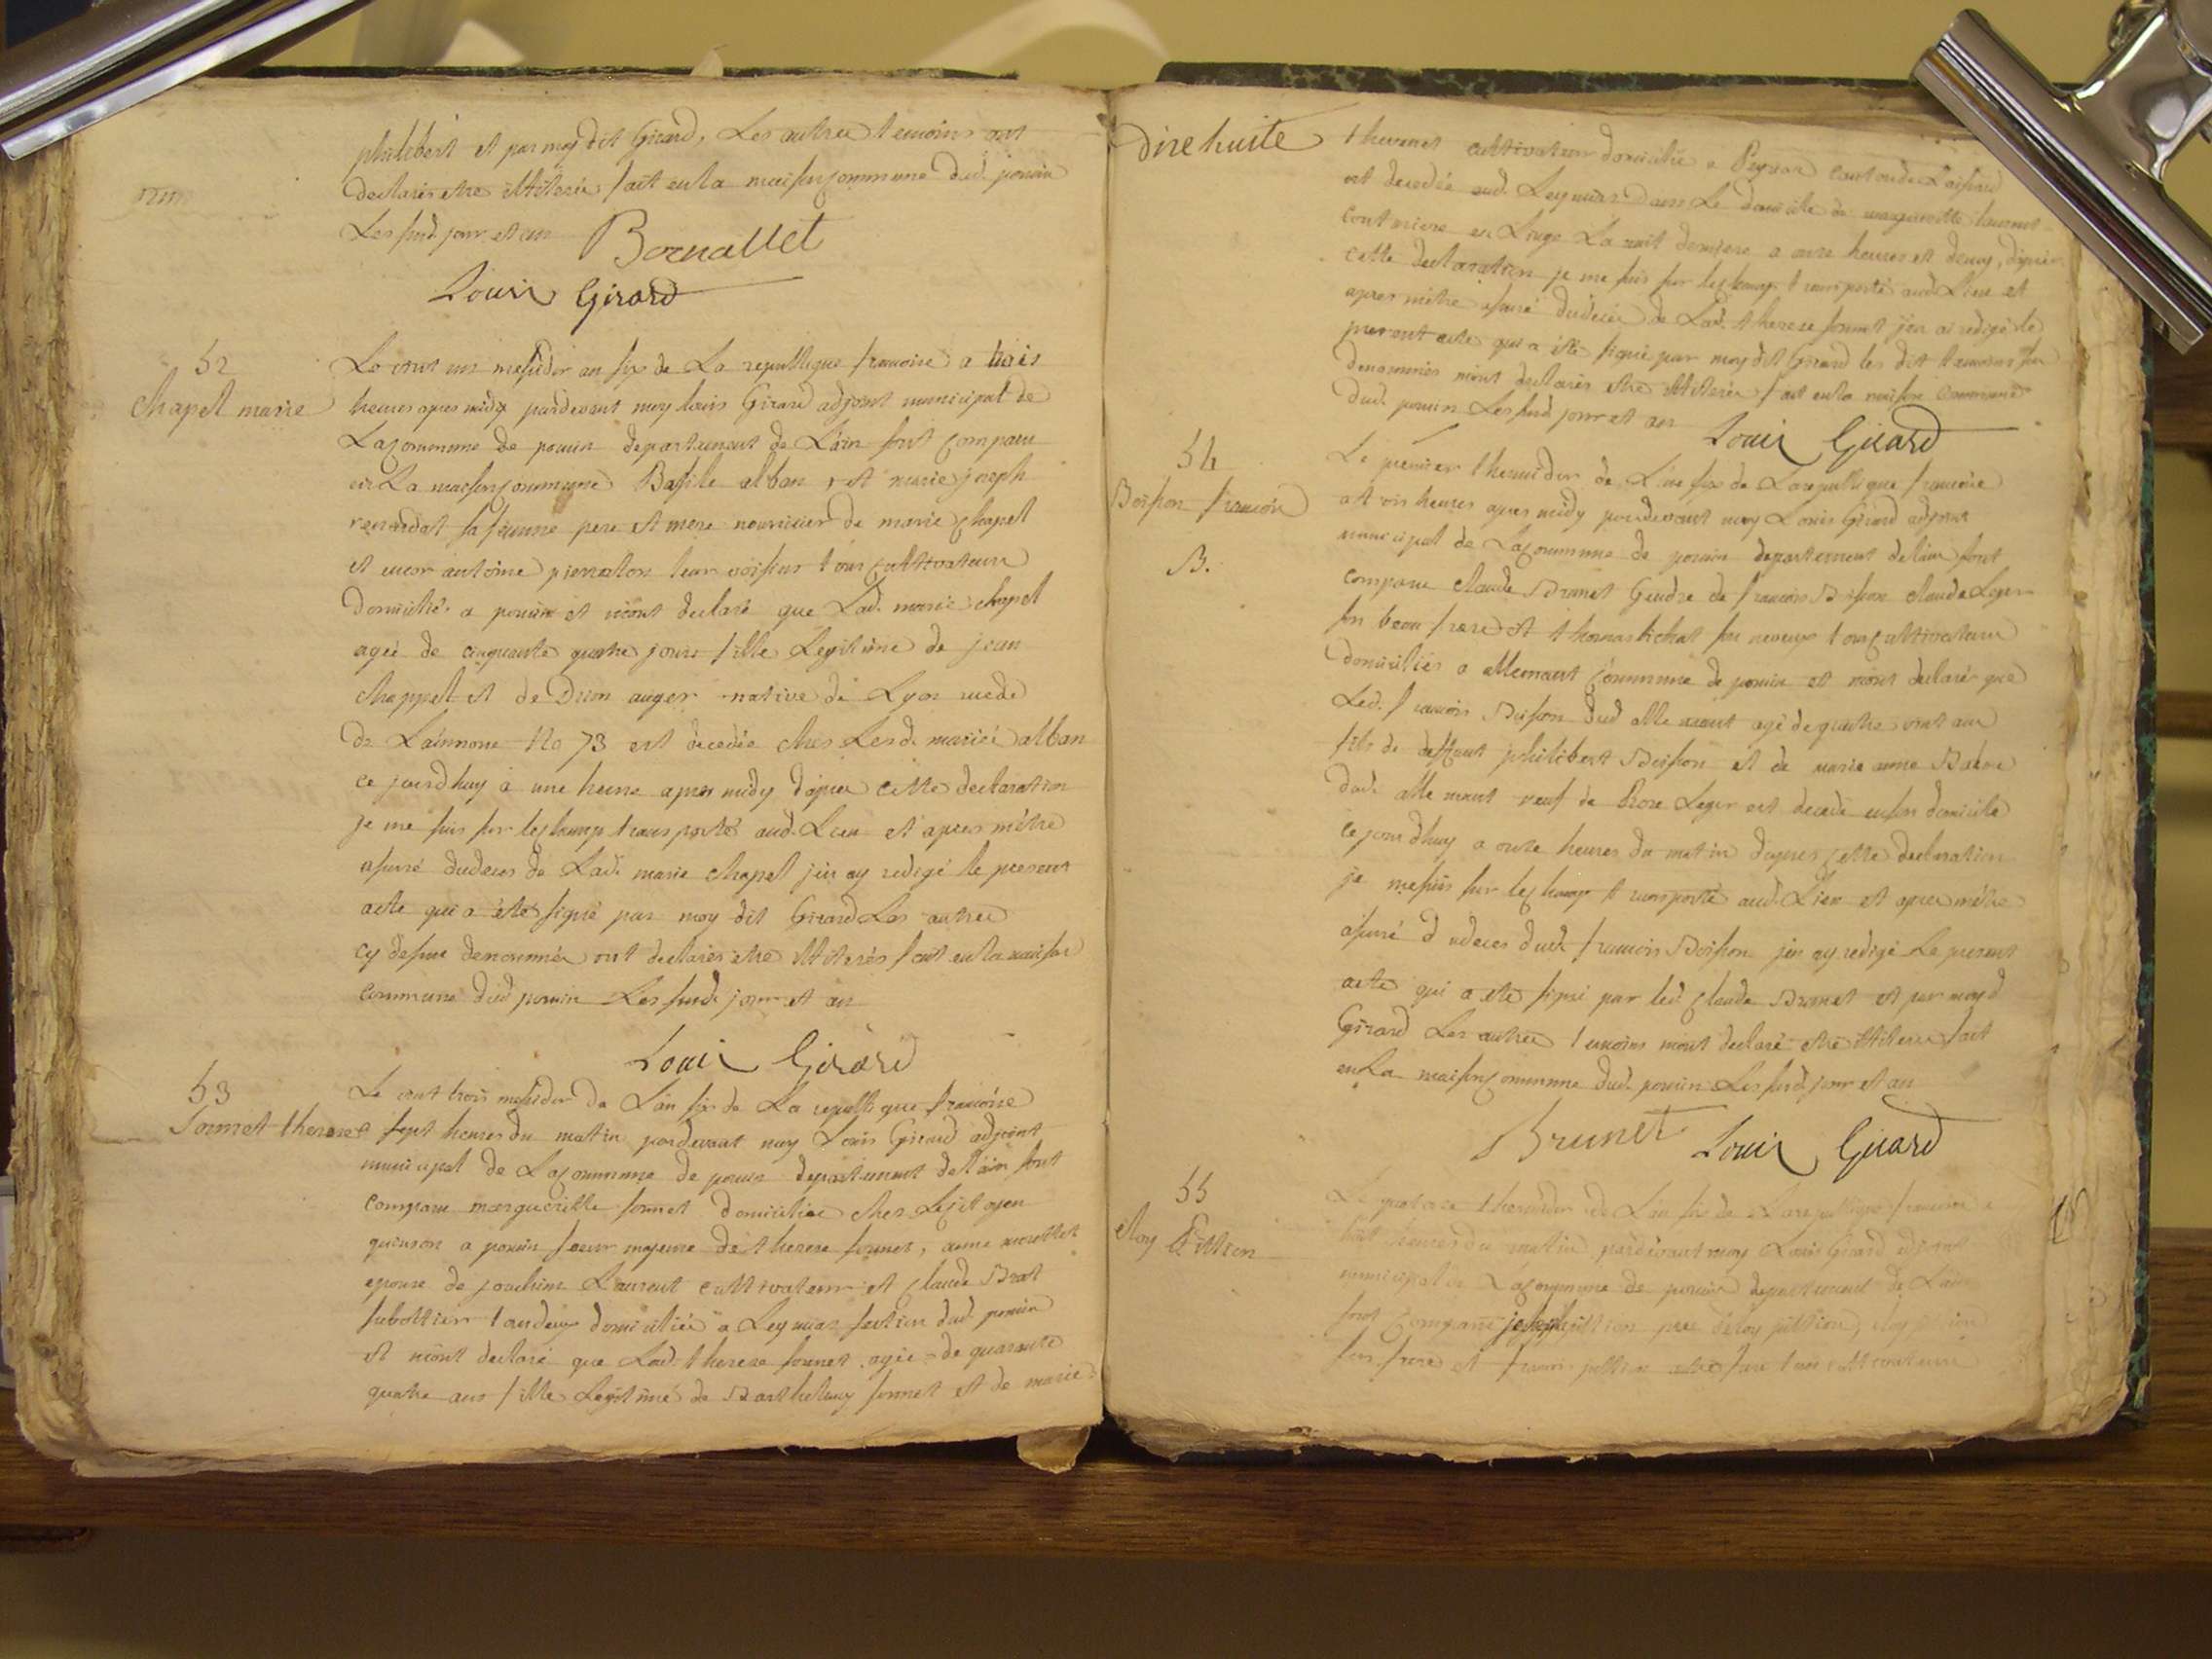 philibert et par moy dit Girard, Les autres temoins ont
declarés etre illiterés fait en la maison commune dud. pouin
Les sud. jour et an
Bornallet
Louis Girard
52
chapel marie
Le vint un messidor an six de La republique francoise a trois
heures apres midy pardevant moy louis Girard adjoint municipal de
La commune de pouin departement de L'ain sont comparu
en La maison commune Basile alban, et marie joseph
sa femme pere et mere nouricier de marie chapel
et encor antoine leur voisins tous cultivateurs
domicilié a pouin et m'ont declaré que Lad. marie chapel
ageé de cinquante quatre jours fille Legitime de jean
chappel et de auger native de Lyon rue de
de No 73 est decedée ches Lesd. mariés alban
ce jourdhuy à une heure apres midy d'apres cette declaration
je me suis sur le champ transporté aud. Lieu et apres m'etre
assuré du deces de Lad. marie chapel j'en ay redigé le present
acte qui a été signé par moy dit Girard Les autres
cy dessus denommés ont declarés etre illiterés fait en la maison
commune dud pouin Les sud. jour et an
Louis Girard
53
Sornet therese
Le vint trois messidor de L'an six de La republique francoise
a sept heures du matin pardevant moy Louis Girard adjoint
municipal de La commune de pouin departement de l'ain sont
comparu margueritte sornet domiciliée ches Le citoyen
quinson a pouin soeur majeure de therese sornet, anne
epouse de joachim Laurent cultivateur et claude Brat
sabottier tous deux domiciliés a Leymiat section dud. pouin
et m'ont declaré que Lad. therese sornet ageé de quarante
quatre ans fille Legitime de Barthelemy sornet et de marie
dixe huite
thevenet cultivateur domicilié a canton de
est decedée aud. Leymiat dans Le domicile de margueritte
couturiere en Linge La nuit derniere a onze heures et demy, d'apres
cette declaration je me suis sur le champ transporté aud. Lieu et
apres m'etre assuré du deces de Lad. therese sornet j'en ai redigé le
present acte qui a été signé par moy dit Girard les dit temoins
denommés m'ont declarés etre illiterés fait en la maison commune
dud. pouin Les sud. jour et an
Louis Girard
54
Boisson francois
B.
Le premier thermidor de L'an six de La republique francoise
a trois heures apres midy pardevant moy Louis Girard adjoint
municipal de La commune de pouin departement de l'ain sont
comparu claude Brunet Gendre de francois Boisson claude Leger
son beau frere et thomas son neveux tous cultivateurs
domiciliés a allemant commune de pouin et m'ont declarés que
Led. francois Boisson dud allemant agé de quatre vint ans
fils de deffunt philibert Boisson et de marie anne
dud. allemant veuf de Rose Leger est decedé en son domicile
ce jourdhuy a onze heures du matin d'apres cette declaration
je me suis sur le champ transporté aud. Lieu et apres m'etre
assuré du deces dud. francois Boisson j'en ay redigé Le present
acte qui a eté signé par led. claude Brunet et par moy d
Girard Les autres temoins m'ont declaré etre illiterés fait
en La maison commune dud. pouin Les sud. jour et an
Brunet Louis Girard
55
eloy Pittion
Le quatorze thermidor de L'an six de La republique francoise a
huit heures du matin pardevant moy Louis Girard adjoint
municipal de La commune de pouin departement de L'ain
sont comparu joseph pittion pere d'eloy pittion,
son frere et pittion frere tous cultivateurs